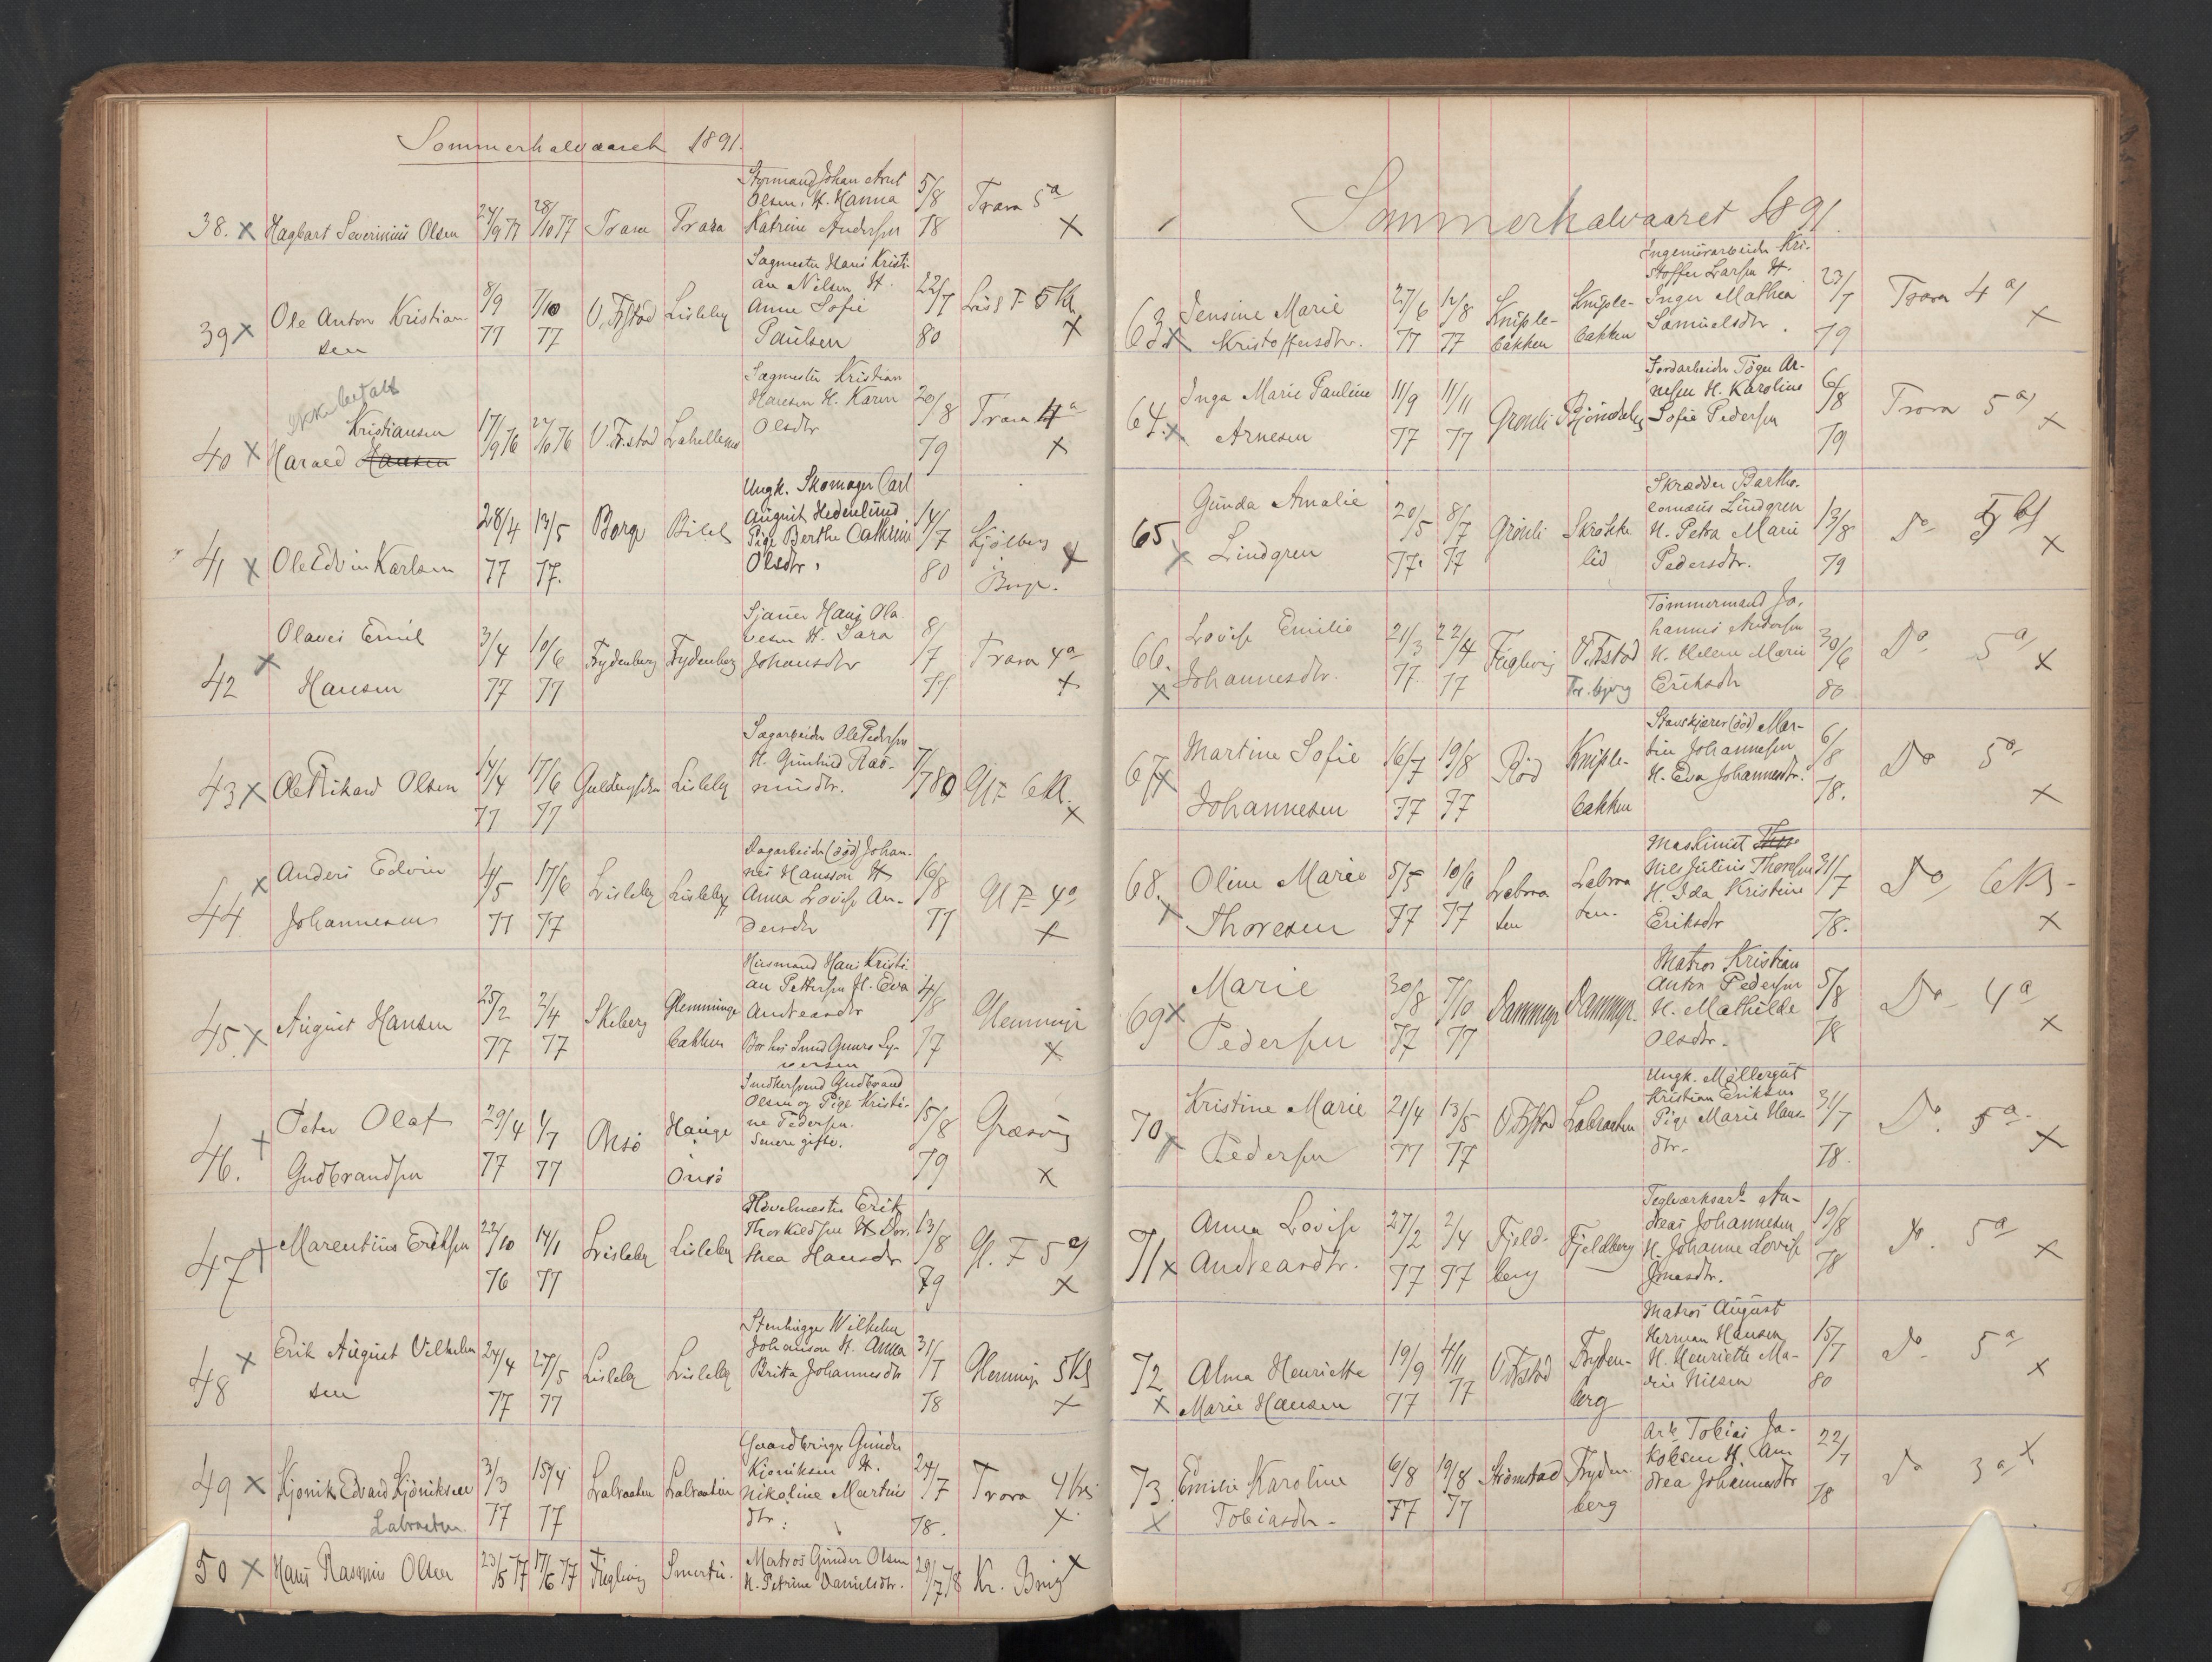 Sommerhalvaaret 1891.
38. x Hagbart Severinius Olsen 27/9 77 28/10 77 Trara Trara Styrmand Johan Arnt Olsen, H. Hanna Katrine Andersen 5/8 78 Trara 5a x
39 x Ole Anton Kristiansen 8/9 77 7/10 77 V. Fstad Lisleby Sagmester Hans Kristian Nilsen H. Anne Sofie Paulsen 22/7 80 5 Kl x
Ikke betalt
40 x Harald Hansen Kristiansen 17/9 76 27/10 76 V. Fr.stad Lahellemo Sagmester Kristian Hansen H. Karen Olsdtr 20/8 79 Trara 4a x
41 x Ole Edvin Karlsen 28/4 77 13/5 77. Borge Bilet Ungk. Skomager Carl August Hedenlund Pige Berthe Cathrine Olsdtr. 14/7 80 Kjølberg Borge. x
42 x Olaves Emil Hansen 3/4 77 10/6 77 Frydenberg Frydenberg Sjauer Hans Olavesen H. Sara Johansdtr 8/7 Trara 4a x
43 x Ole Rikard Olsen 14/4 77 17/6 77 Lisleby Sagarbeider Ole Pedersen H. Gunhild Rasmusdtr. 7/7 80 Gl F 6 Kl. x
44 x Anders Edvin Johannesen 4/5 77 17/6 77 Lisleby Lisleby Dagarbeider (død) Johannes Hansson H Anna Lovise Andersdtr 16/8 77 Gl F 4a x
45. x August Hansen 25/2 77 2/4 77 Skiberg Glemminge bakken Husmand Hans Kristian Pettersen H. Eva Andreasdtr 4/8 77 Glemminge x
Bor hos
46. x Peter Olaf Gudbrandsen 29/4 77 1/7 77 Onsø Hauge Onsø Smedkersvend Gudbrand Olsen og Pige Kristine Pedersen. Senere gifte. 15/8 79 Græsvig x
47 x Marentius Eriksen 22/10 76 14/1 77 Lisleby Lisleby Høvelmester Erik Thorkildsen H Dorthea Hansdtr 13/8 79 Gl. F 5a x
48 x Erik August Vilhelmsen 24/4 77 27/5 77 Lisleby Lisleby Stenhugger Wilhelm Johanson H. Anna Britta Johannesdtr 31/7 78 Glemminge 5 Kl x
49 x Kjønik Edvard Kjøniksen 3/3 77 15/4 77 Labraaten Labraaten Gaardbruger Gunder Kjøniksen H. Nikoline Martinsdtr. 24/7 78. Trara 4 Kl x
Labraaten.
50 x Hans Rasmus Olsen 23/5 77 17/6 77 Fuglevig Smertu. Matros Gunder Olsen H. Petrine Danielsdtr. 29/7 78 Kr. Brug x
Sommerhalvaaret 1891.
63. x Jensine Marie Kristoffersdtr. 27/6 77 12/8 77 Kniplebakken Kniplebakken Ingeniørarbeider Kristoffer Larsen H. Inger Mathea Samuelsdtr. 23/7 79 Trara 4a x
64. x Inga Marie Pauline Arnesen 11/9 77 11/11 77 Grønli Bjørndalen Jordarbeider Tøger Arnesen H. Karoline Sofie Pedersen 6/8 79 Trara 5a x
65 x Gunda Amalie Lindgren 20/5 77. 8/7 77 Grønli Skrækkelid Skrædder Bartholomæus Lindgren H. Petra Marie Pedersdtr. 13/8 79 Do x
66. x Lovise Emilie Johannesdtr. 21/3 77. 22/4 77 Fuglevig V. Fstad Tømmermand Johannes Andersen H. Helene Marie Eriksdtr 30/6 80 Do 5a x
67 x Martine Sofie Johannesen 16/7 77 19/8 77 Rød Kniplebakken Stavskjærer (død) Martin Johannesen H. Eva Johannesdtr. 6/8 78. Do 5a x
68. x Oline Marie Thoresen 5/5 77 10/6 77 Labraaten Labraaten. Maskinist Thor Nils Julius Thoresen H. Ida Kristine Eriksdtr 31/7 78. Do 6 Kl x
69 x Marie Pedersen 30/8 77 7/10 77 Dammyr Dammyr. Matros Kristian Anton Pedersen H. Mathilde Olsdtr. 5/8 78 Do 4a x
70 x Kristine Marie Pedersen 21/4 77 13/5 77 V Fstad Labraaten Ungk. Møllergut Kristian Eriksen Pige Marie Hansdtr. 31/7 78. Do. 5a x
71 x Anna Lovise Andreasdtr. 27/2 77 2/4 77 Fjeldberg Fjeldberg Teglværksarb. Andreas Johannesen H. Johanne Lovise Jonasdtr. 19/8 78 Do. 5a x
72 x Alma Henriette Marie Hansen 19/9 77 4/11 77 V Fstad Frydenberg Matros August Herman Hansen H. Henriette Marie Nilsen 15/7 80 Do 5a x
73. x Emilie Karoline Tobiasdtr. 6/8 77 19/8 77 Strømstad Frydenberg Arb. Tobias Jakobsen H. Andrea Johannesdtr 22/7 78 Do 3a x